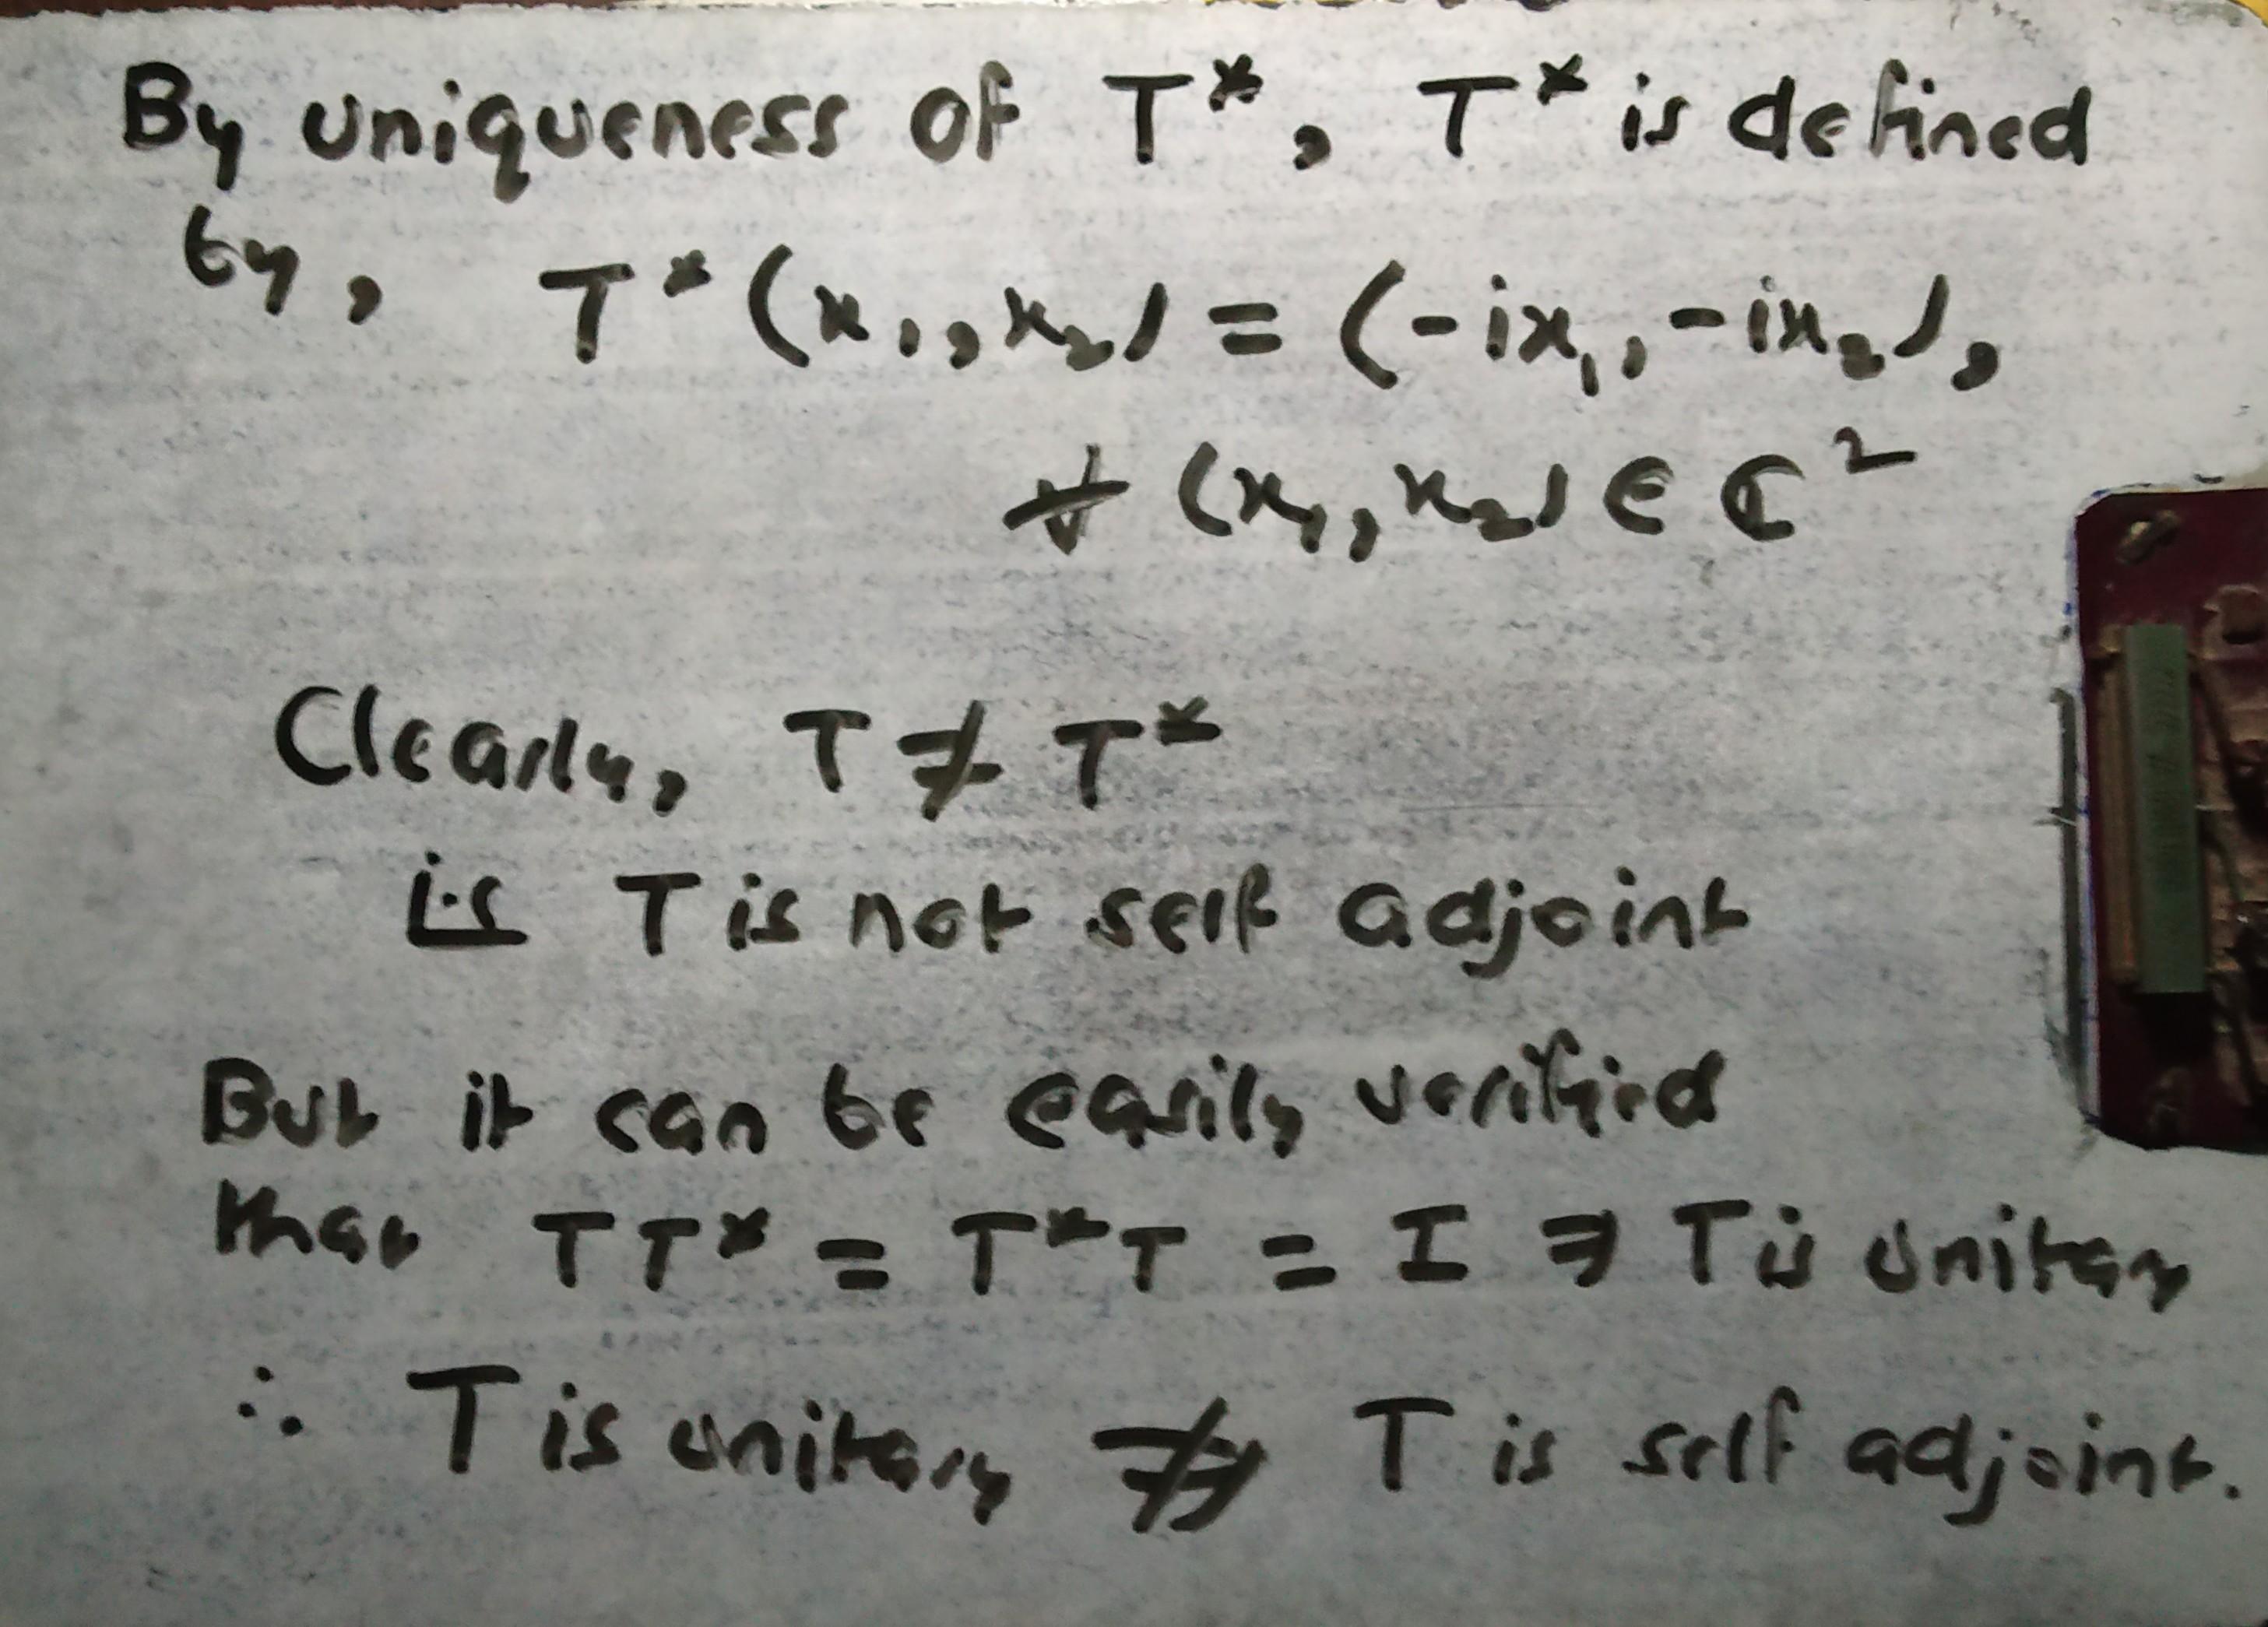 By uniqueness of T*, T* is defined
by, T*(x₁,x₂) = (-ix₁,-ix₂),
∀ (x₁,x₂) ∈ ℂ²
Clearly, T ≠ T*
i.e T is not self adjoint
But it can be easily verified
that TT* = T*T = I ⇒ T is unitary
∴ T is unitary ⇏ T is self adjoint.